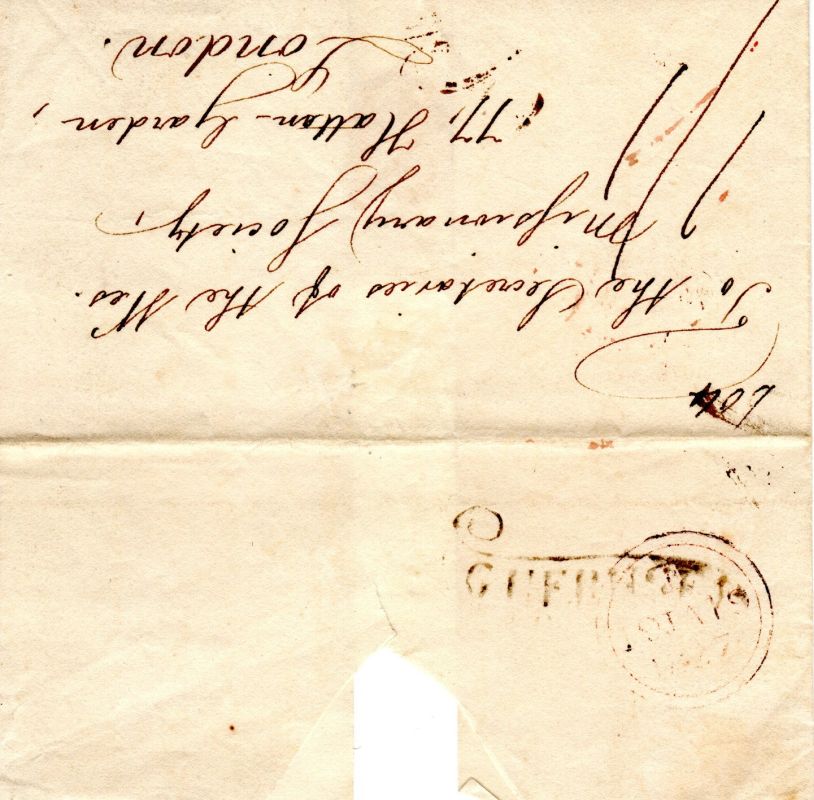 To the Secretaries of the Wes.
Missionary Society,
77, Hatton-Garden,
London.
GUERNSEY